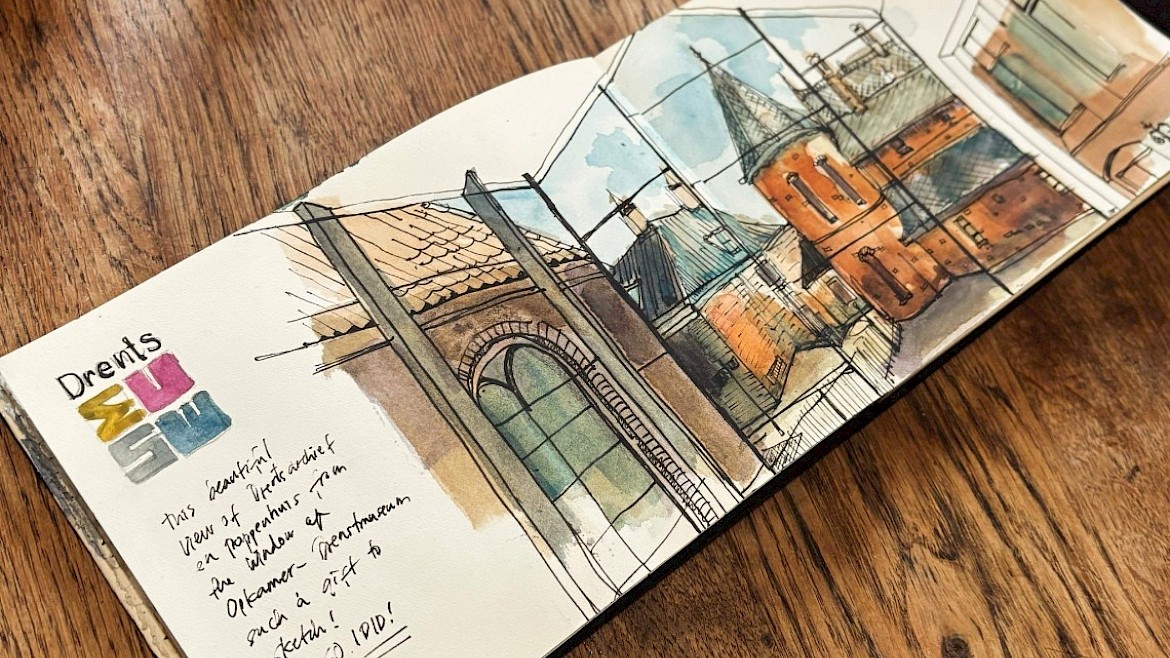 Drents
MU
SEU
this beautiful
view of Drentsarchief
en Poppenhuis from
the window of
Opkamer - Drentmuseum
such a gift to
sketch!
SO I DID!